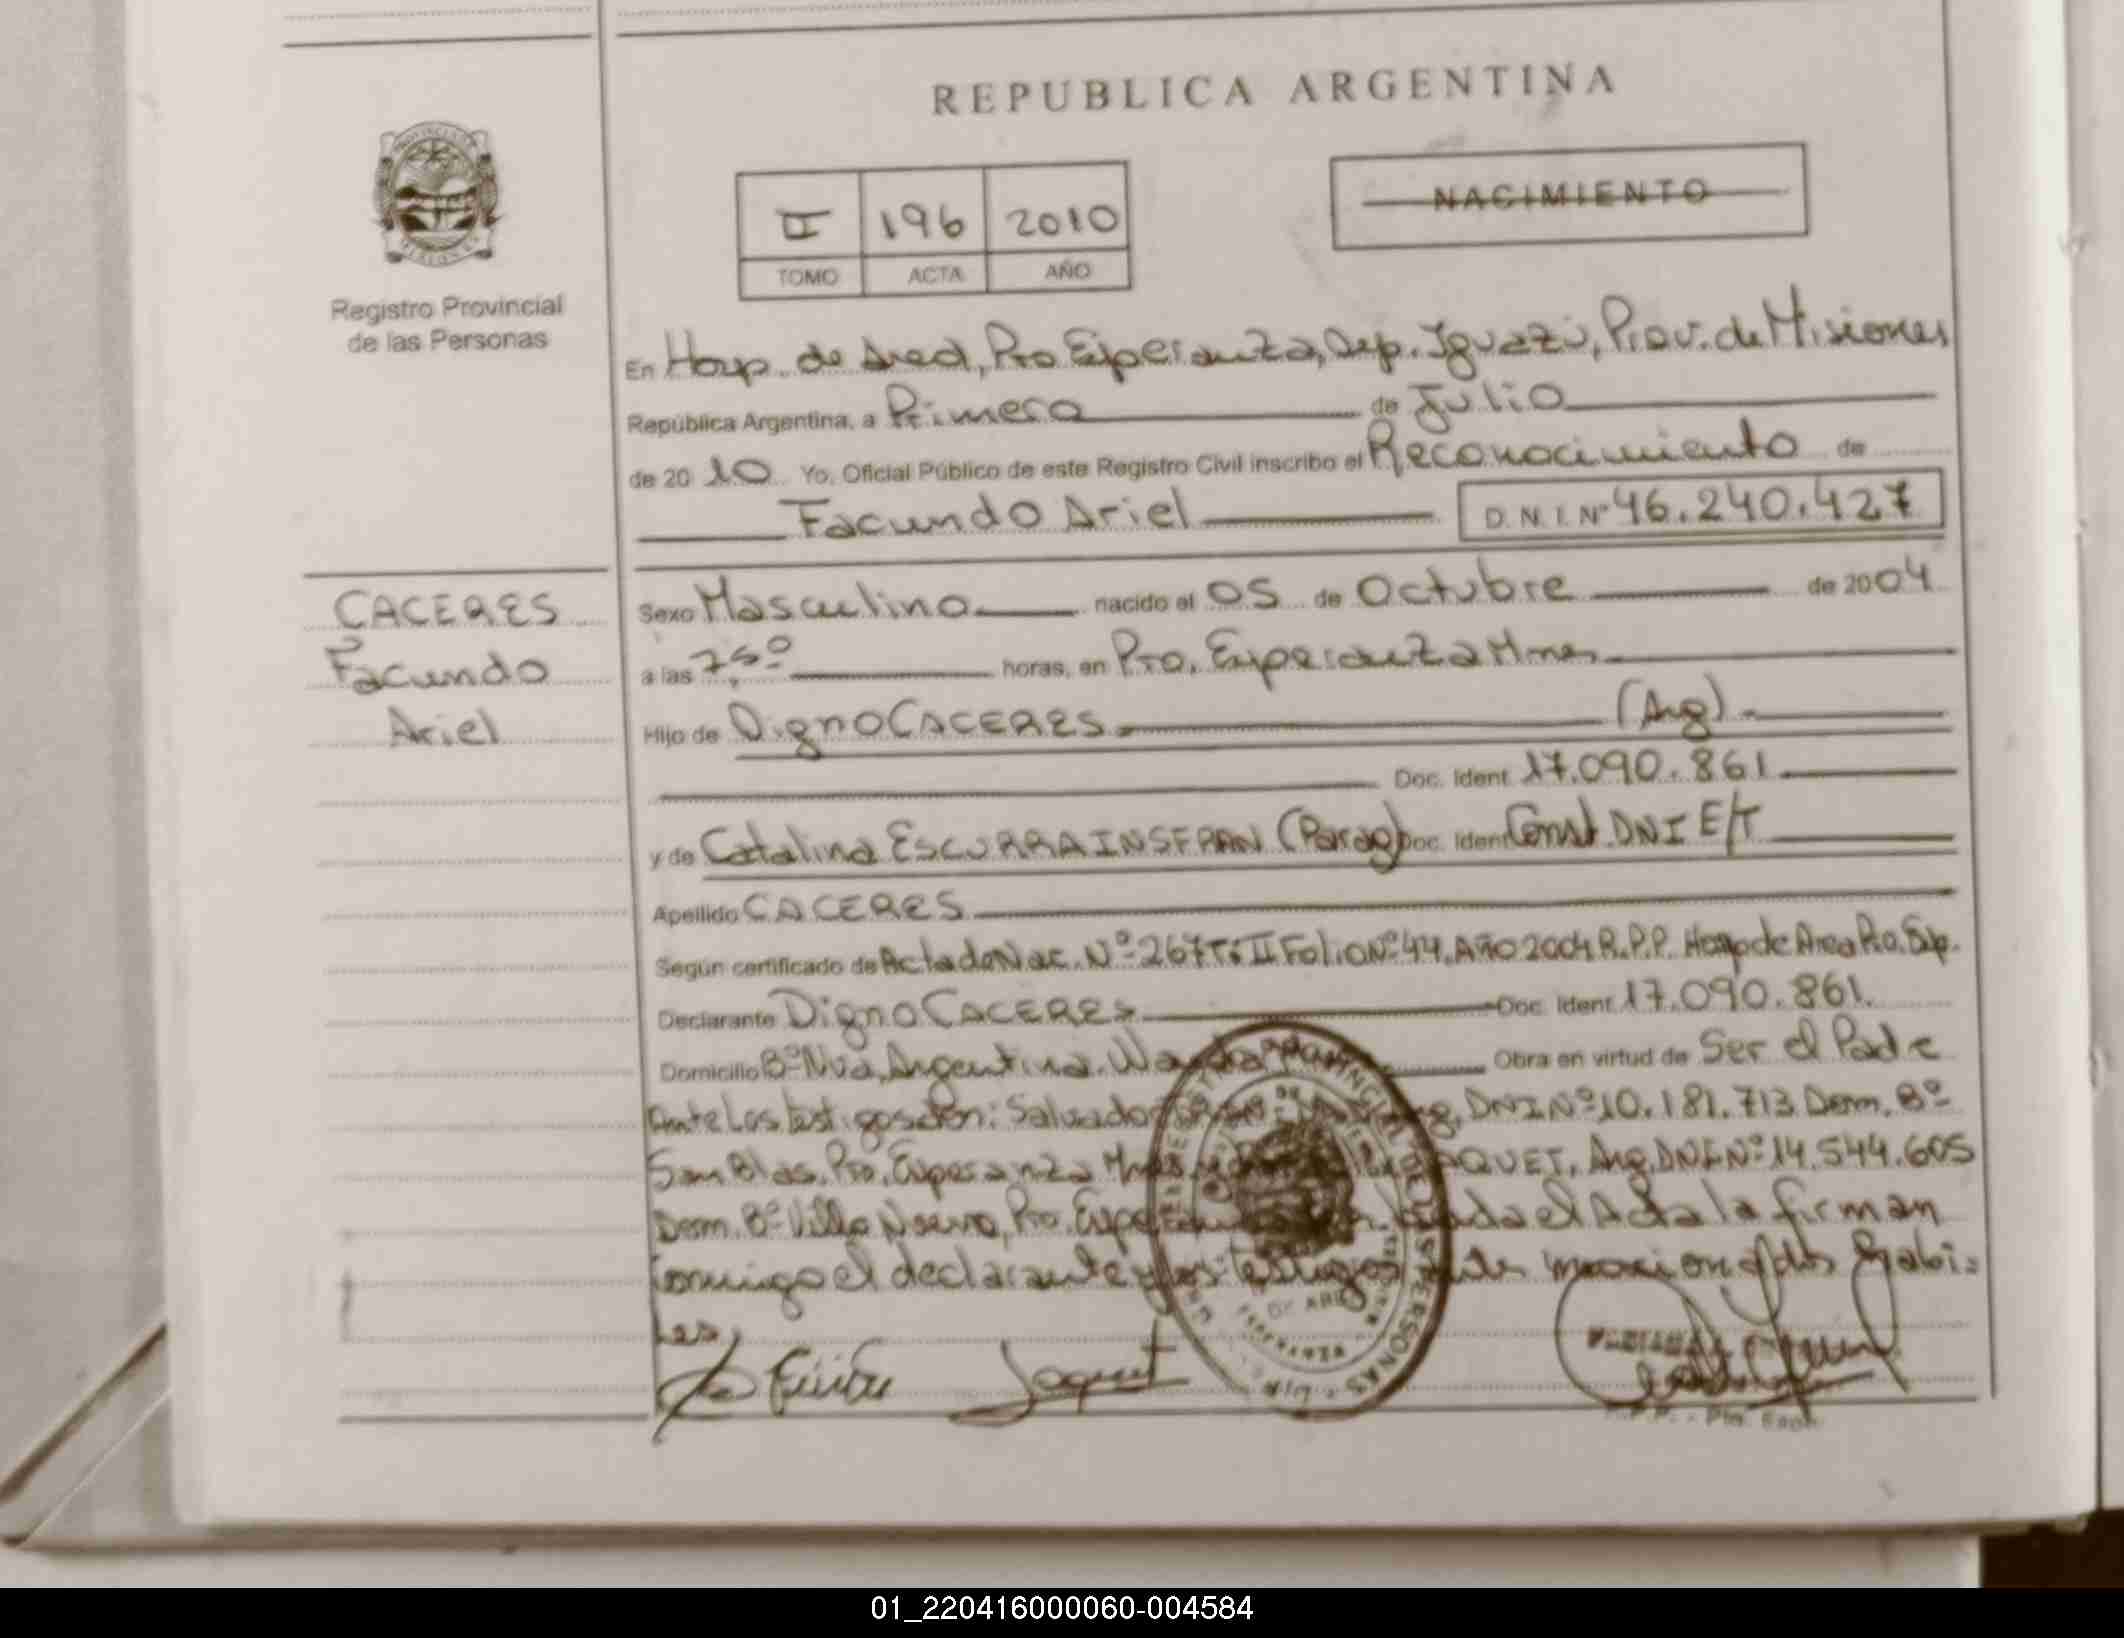 REPUBLICA ARGENTINA
II 196 2010
TOMO ACTA AÑO
NACIMIENTO
Registro Provincial
de las Personas
En Hosp. de Area, Pto Esperanza, Dep. Iguazú, Prov. de Misiones
República Argentina, a Primero de Julio
de 20 10 Yo, Oficial Público de este Registro Civil inscribo el Reconocimiento de
Facundo Ariel D.N.I. Nº 46.240.427
CACERES
Facundo
Ariel
Sexo Masculino nacido el 05 de Octubre de 2004
a las 7,50 horas, en Pto. Esperanza Mnes
Hijo de Digno CACERES (Arg)
Doc. Ident. 17.090.861
y de Catalina ESCURRA INSFRAN (Parag) Doc. Ident Const. DNI E/T
Apellido CACERES
Según certificado de Acta de Nac. Nº 267 Tº II Folio Nº 44. Año 2004 R.P.P. Hosp de Area Pto. Esp.
Declarante Digno CACERES Doc. Ident. 17.090.861.
Domicilio Bº Nva, Argentina. Wanda Obra en virtud de Ser el Padre
Ante Los testigos son: Salvador DNI Nº 10.181.713 Dom. Bº
San Blas. Pto. Esperanza Mnes JAQUET, Arg. DNI Nº 14.544.605
Dom. Bº Villa Nueva, Pto. el Acta la firman
conmigo el declarante y los testigos
Jaquet